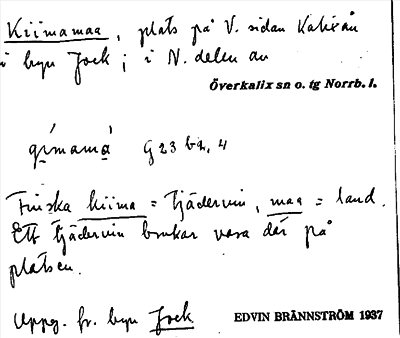 Kiimamaa, plats på V. sidan Kalixån
i byn Jock; i N. delen av
Överkalix sn o. tg Norrb. l.
G 23 b2, 4
Finska kiima = tjädervin, maa = land.
Ett tjädervin brukar vara där på
platsen.
Uppg. fr. byn Jock
EDVIN BRÄNNSTRÖM 1937